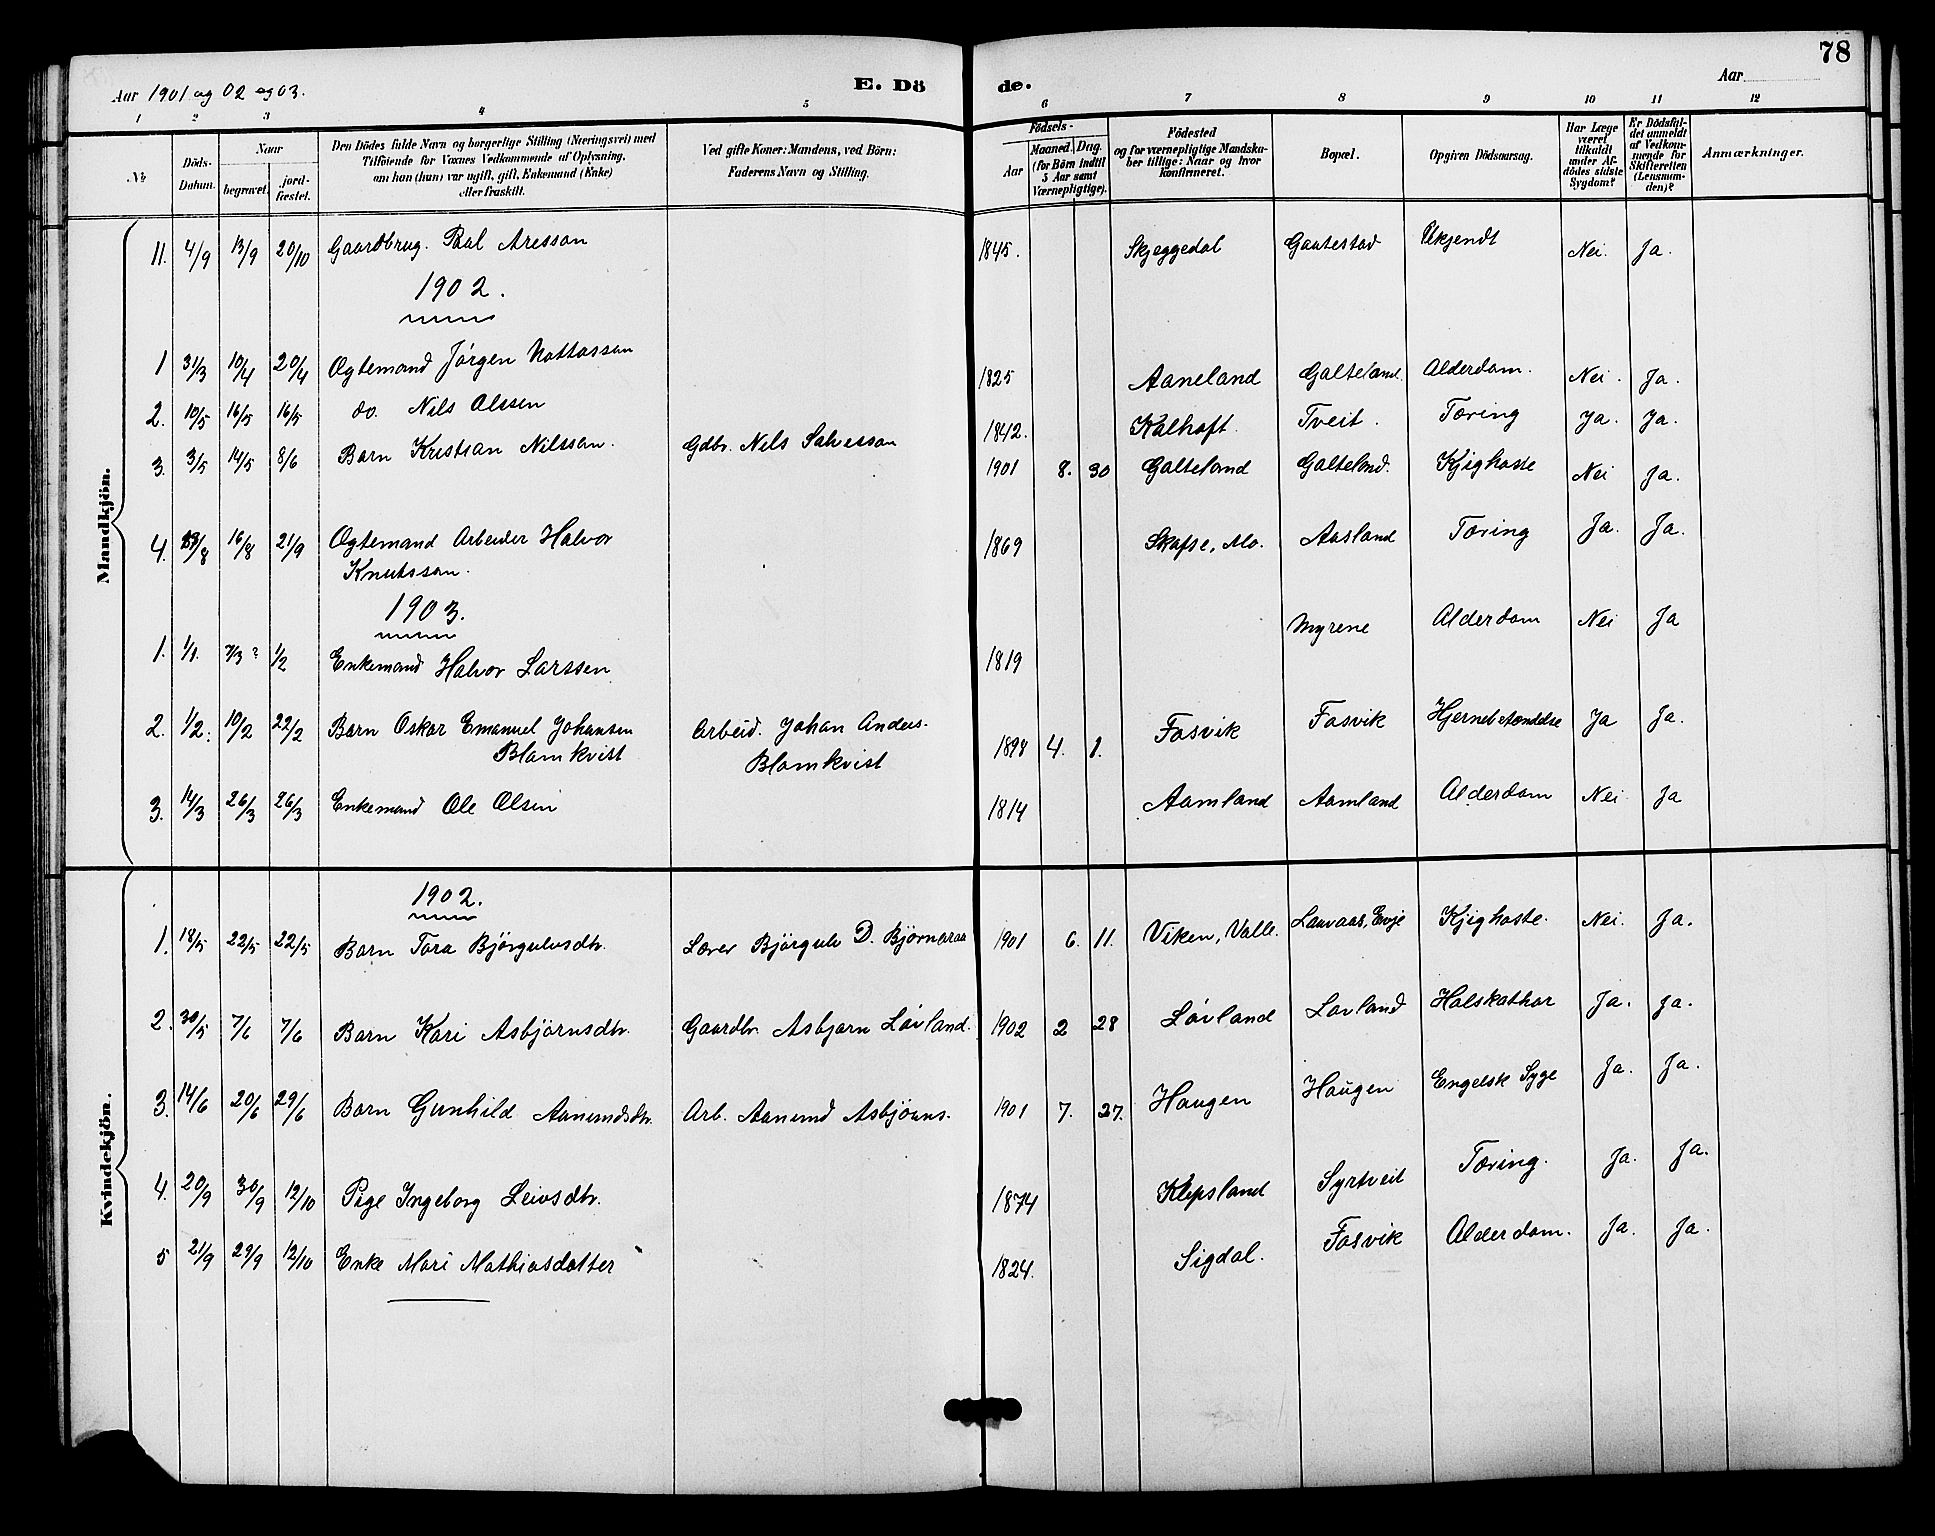 78
Aar 1901 og 02 og 03.
E. Dö de.
Aar
1 2 3 4 5 6 7 8 9 10 11 12
No
Döds-Datum.
Naar
begravet.
jord-fæstet.
Den Dödes fulde Navn og borgerlige Stilling (Næringsvei) med
Tilföiende for Voxnes Vedkommende af Oplysning,
om han (hun) var ugift, gift, Enkemand (Enke)
eller fraskilt.
Ved gifte Koner: Mandens, ved Börn:
Faderens Navn og Stilling.
Födsels-
Aar
Maaned. Dag.
(for Börn indtil
5 Aar samt
Værnepligtige).
Födested
og for værnepligtige Mandska-
ber tillige: Naar og hvor
konfirmeret.
Bopæl.
Opgiven Dödsaarsag.
Har Læge
været
tilkaldt
under Af-
dödes sidste
Sygdom?
Er Dödsfal-
det anmeldt
af Vedkom-
mende for
Skifteretten
(Lensman-
den)?
Anmærkninger.
Mandkjön.
11. 4/9 13/9 20/10 Gaardbrug. Paal Aresson 1845. Skjeggedal Gautestad Ukjendt Nei. Ja.
1902.
1 31/3 10/4 20/4 Ogtemand Jörgen Nottosson 1825 Aaneland Galteland. Alderdom. Nei. Ja.
2. 10/5 16/5 16/5 do. Nils Olssen 1842. Kålhoft. Tveit. Tæring Ja. Ja.
3. 3/5 14/5 8/6 Barn Kristian Nilsson. Gdbr. Nils Salvesson 1901 8. 30 Galteland Galteland. Kjighoste Nei Ja.
4. /8 16/8 21/9 Ogtemand Arbeider Halvor
Knutsson. 1869 Skafse, Mo. Aasland Tæring Ja. Ja.
1903.
1. 1/1. 7/3? 1/2 Enkemand Halvor Larssen 1819 Myrene Alderdom Nei Ja
2. 1/2. 10/2 22/2 Barn Oskar Emanuel Johansen
Blomkvist Arbeid. Johan Anders.
Blomkvist 1898 4. 1. Fosvik Fosvik Hjernebetændelse Ja Ja.
3. 14/3 26/3 26/3 Enkemand Ole Olsen 1814 Aamland Aamland Alderdom Nei Ja
Kvindekjön.
1902.
1. 18/5 22/5 22/5 Barn Tora Björgulvsdtr. Lærer Björgulv D. Björnaraa 1901 6. 11. Viken, Valle. Lauvaas, Evje Kjighoste. Nei. Ja.
2. 30/5 7/6 7/6 Barn Kari Asbjörnsdtr. Gaardbr. Asbjorn Lövland. 1902 2 28 Lövland Lovland Halskathar Ja. Ja.
3. 14/6 20/6 29/6 Barn Gunhild Aanundsdtr. Arb. Aanund Asbjörns. 1901 7. 27. Haugen Haugen Engelsk Syge Ja. Ja.
4. 20/9 30/9 12/10 Pige Ingeborg Leivsdtr. 1874 Klepsland Syrtveit Tæring. Ja. Ja.
5 21/9 29/9 12/10 Enke Mari Mathiasdatter 1824. Sigdal. Fosvik Alderdom. Ja. Ja.